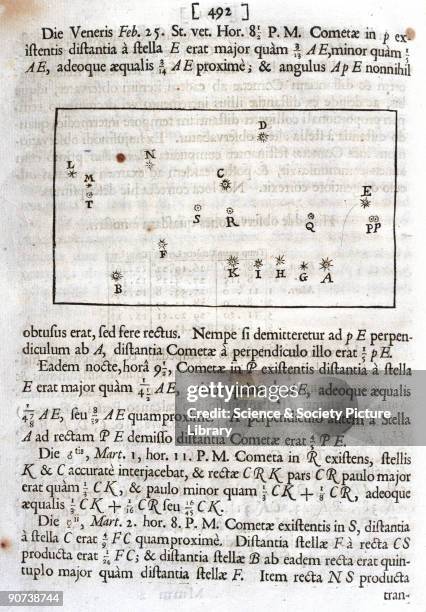 [ 492 ]
Die Veneris Feb. 25. St. vet. Hor. 8½ P. M. Cometæ in p ex-
istentis distantia à stella E erat major quàm 3/13 AE, minor quàm 1/5
AE, adeoque æqualis 3/14 AE proximè; & angulus ApE nonnihil
D
L
N
M
C
T
E
S
R
Q
PP
F
K
I
H
G
A
B
obtusus erat, sed fere rectus. Nempe si demitteretur ad pE perpen-
diculum ab A, distantia Cometæ à perpendiculo illo erat 1/5 pE.
Eadem nocte, horâ 9½, Cometæ in P existentis distantia à stella
E erat major quàm AE, adeoque æqualis
AE, seu 8/39 AE quamproxime. perpendiculo autem à Stella
A ad rectam PE demisso distantia Cometæ erat 4/5 PE.
Die ♂tis, Mart. 1, hor. 11. P. M. Cometa in R existens, stellis
K & C accuratè interjacebat, & rectæ CRK pars CR paulo major
erat quàm 1/3 CK, & paulo minor quam 1/3 CK + 1/8 CR, adeoque
æqualis 1/3 CK + 1/16 CR seu 16/45 CK.
Die ☿ii, Mart. 2. hor. 8. P. M. Cometæ existentis in S, distantia
à stella C erat 4/9 FC quamproximè. Distantia stellæ F à recta CS
producta erat 1/24 FC; & distantia stellæ B ab eadem recta erat quin-
tuplo major quàm distantia stellæ F. Item recta NS producta
tran-
gettyimages
Credit: Science & Society Picture Library
90738744